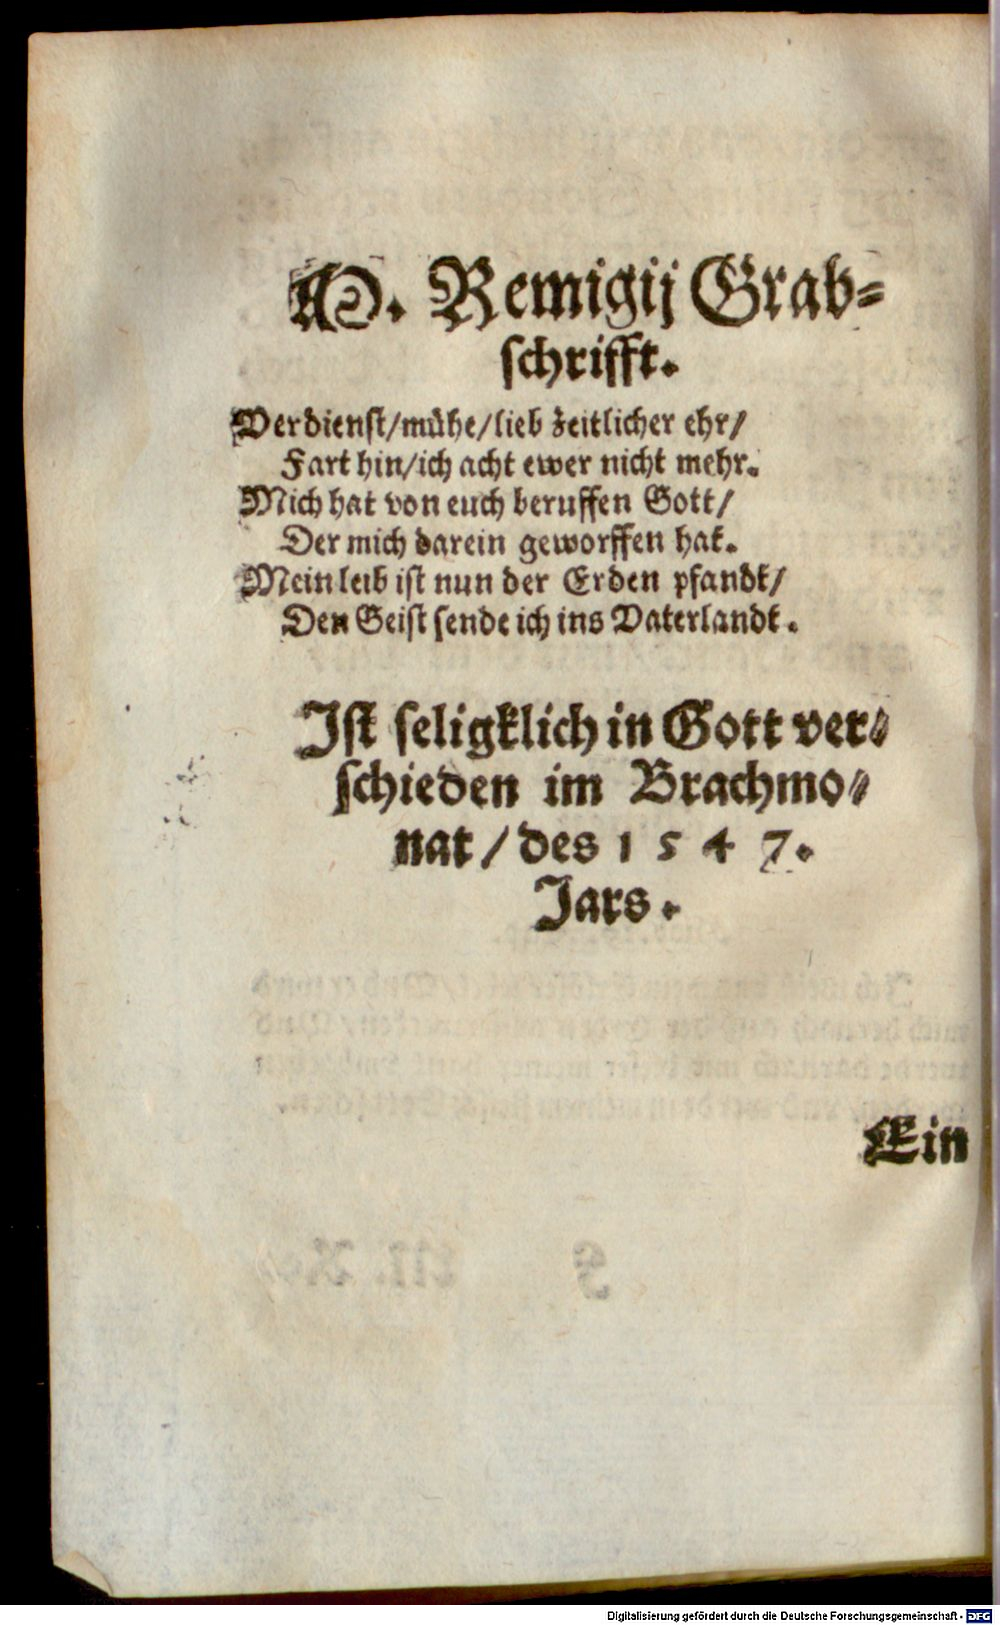 M. Remigij Grab-
schrifft.
Verdienst/mühe/lieb zeitlicher ehr/
Fart hin/ich acht ewer nicht mehr.
Mich hat von euch beruffen Gott/
Der mich darein geworffen hat.
Mein leib ist nun der Erden pfandt/
Den Geist sende ich ins Vaterlandt.
Ist seligklich in Gott ver-
schieden im Brachmo-
nat / des 1547.
Jars.
Ein
Digitalisierung gefördert durch die Deutsche Forschungsgemeinschaft - DFG